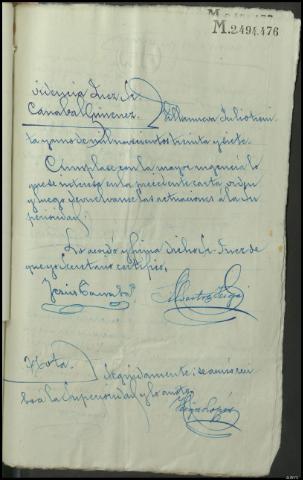 M.2494.476
videncia Juez Sr.
Canabal Gimenez. Villamran Julio trein
ta y uno de mil novecientos treinta y siete.
Cúmplase con la mayor urgencia lo
que se interesa en la precedente carta orden
y luego devuélvanse las actuaciones a la Su
perioridad.
Lo acordó y firma dicho Sr. Juez de
que yo Secretario certifico,
Jesús Canabal
Nota. Seguidamente se
a la Superioridad y lo anoto.